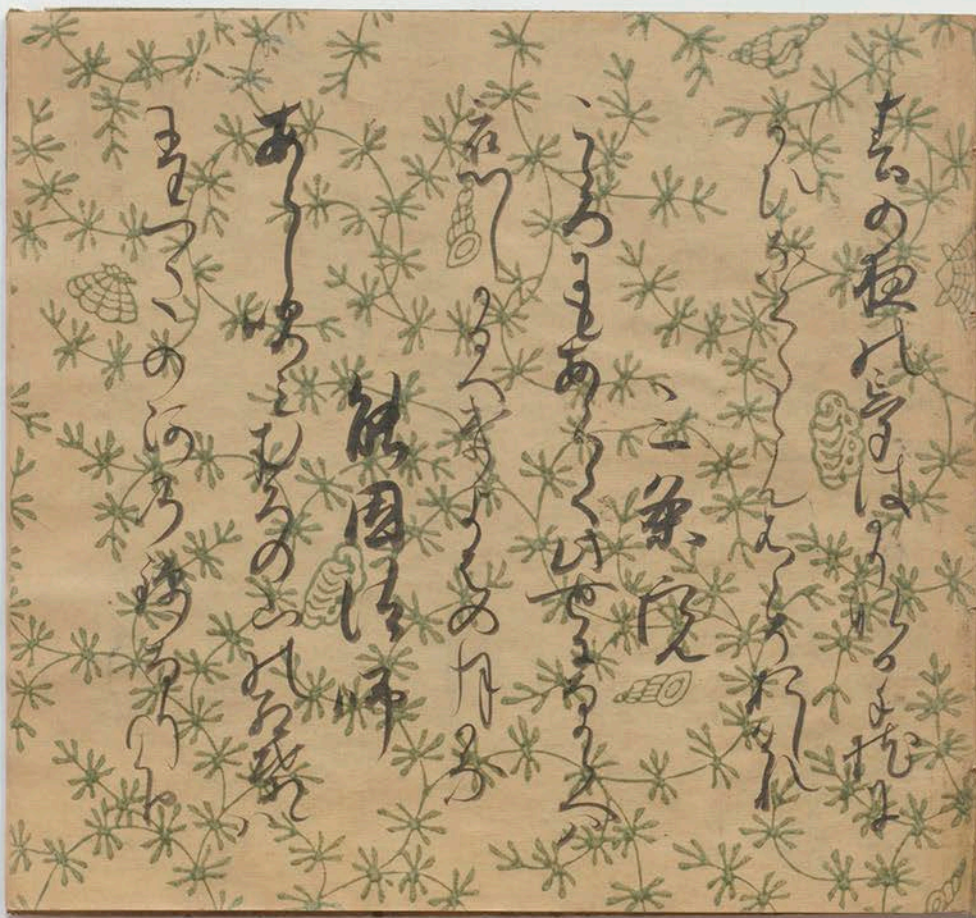 春の夜の夢はかりなる手枕に
かひなくたゝん名こそ惜けれ
三条院
こゝろにもあらて此世になからへは
恋しかるへきよはの月かな
能因法師
あらし吹みむろの山の紅葉は
たつたの河の錦なりけり